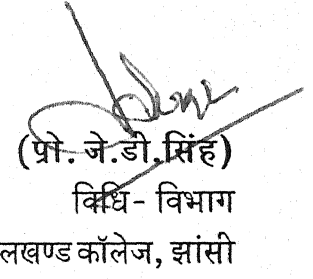 (प्रो. जे.डी.सिंह)
विधि- विभाग
लखण्ड कॉलेज, झांसी